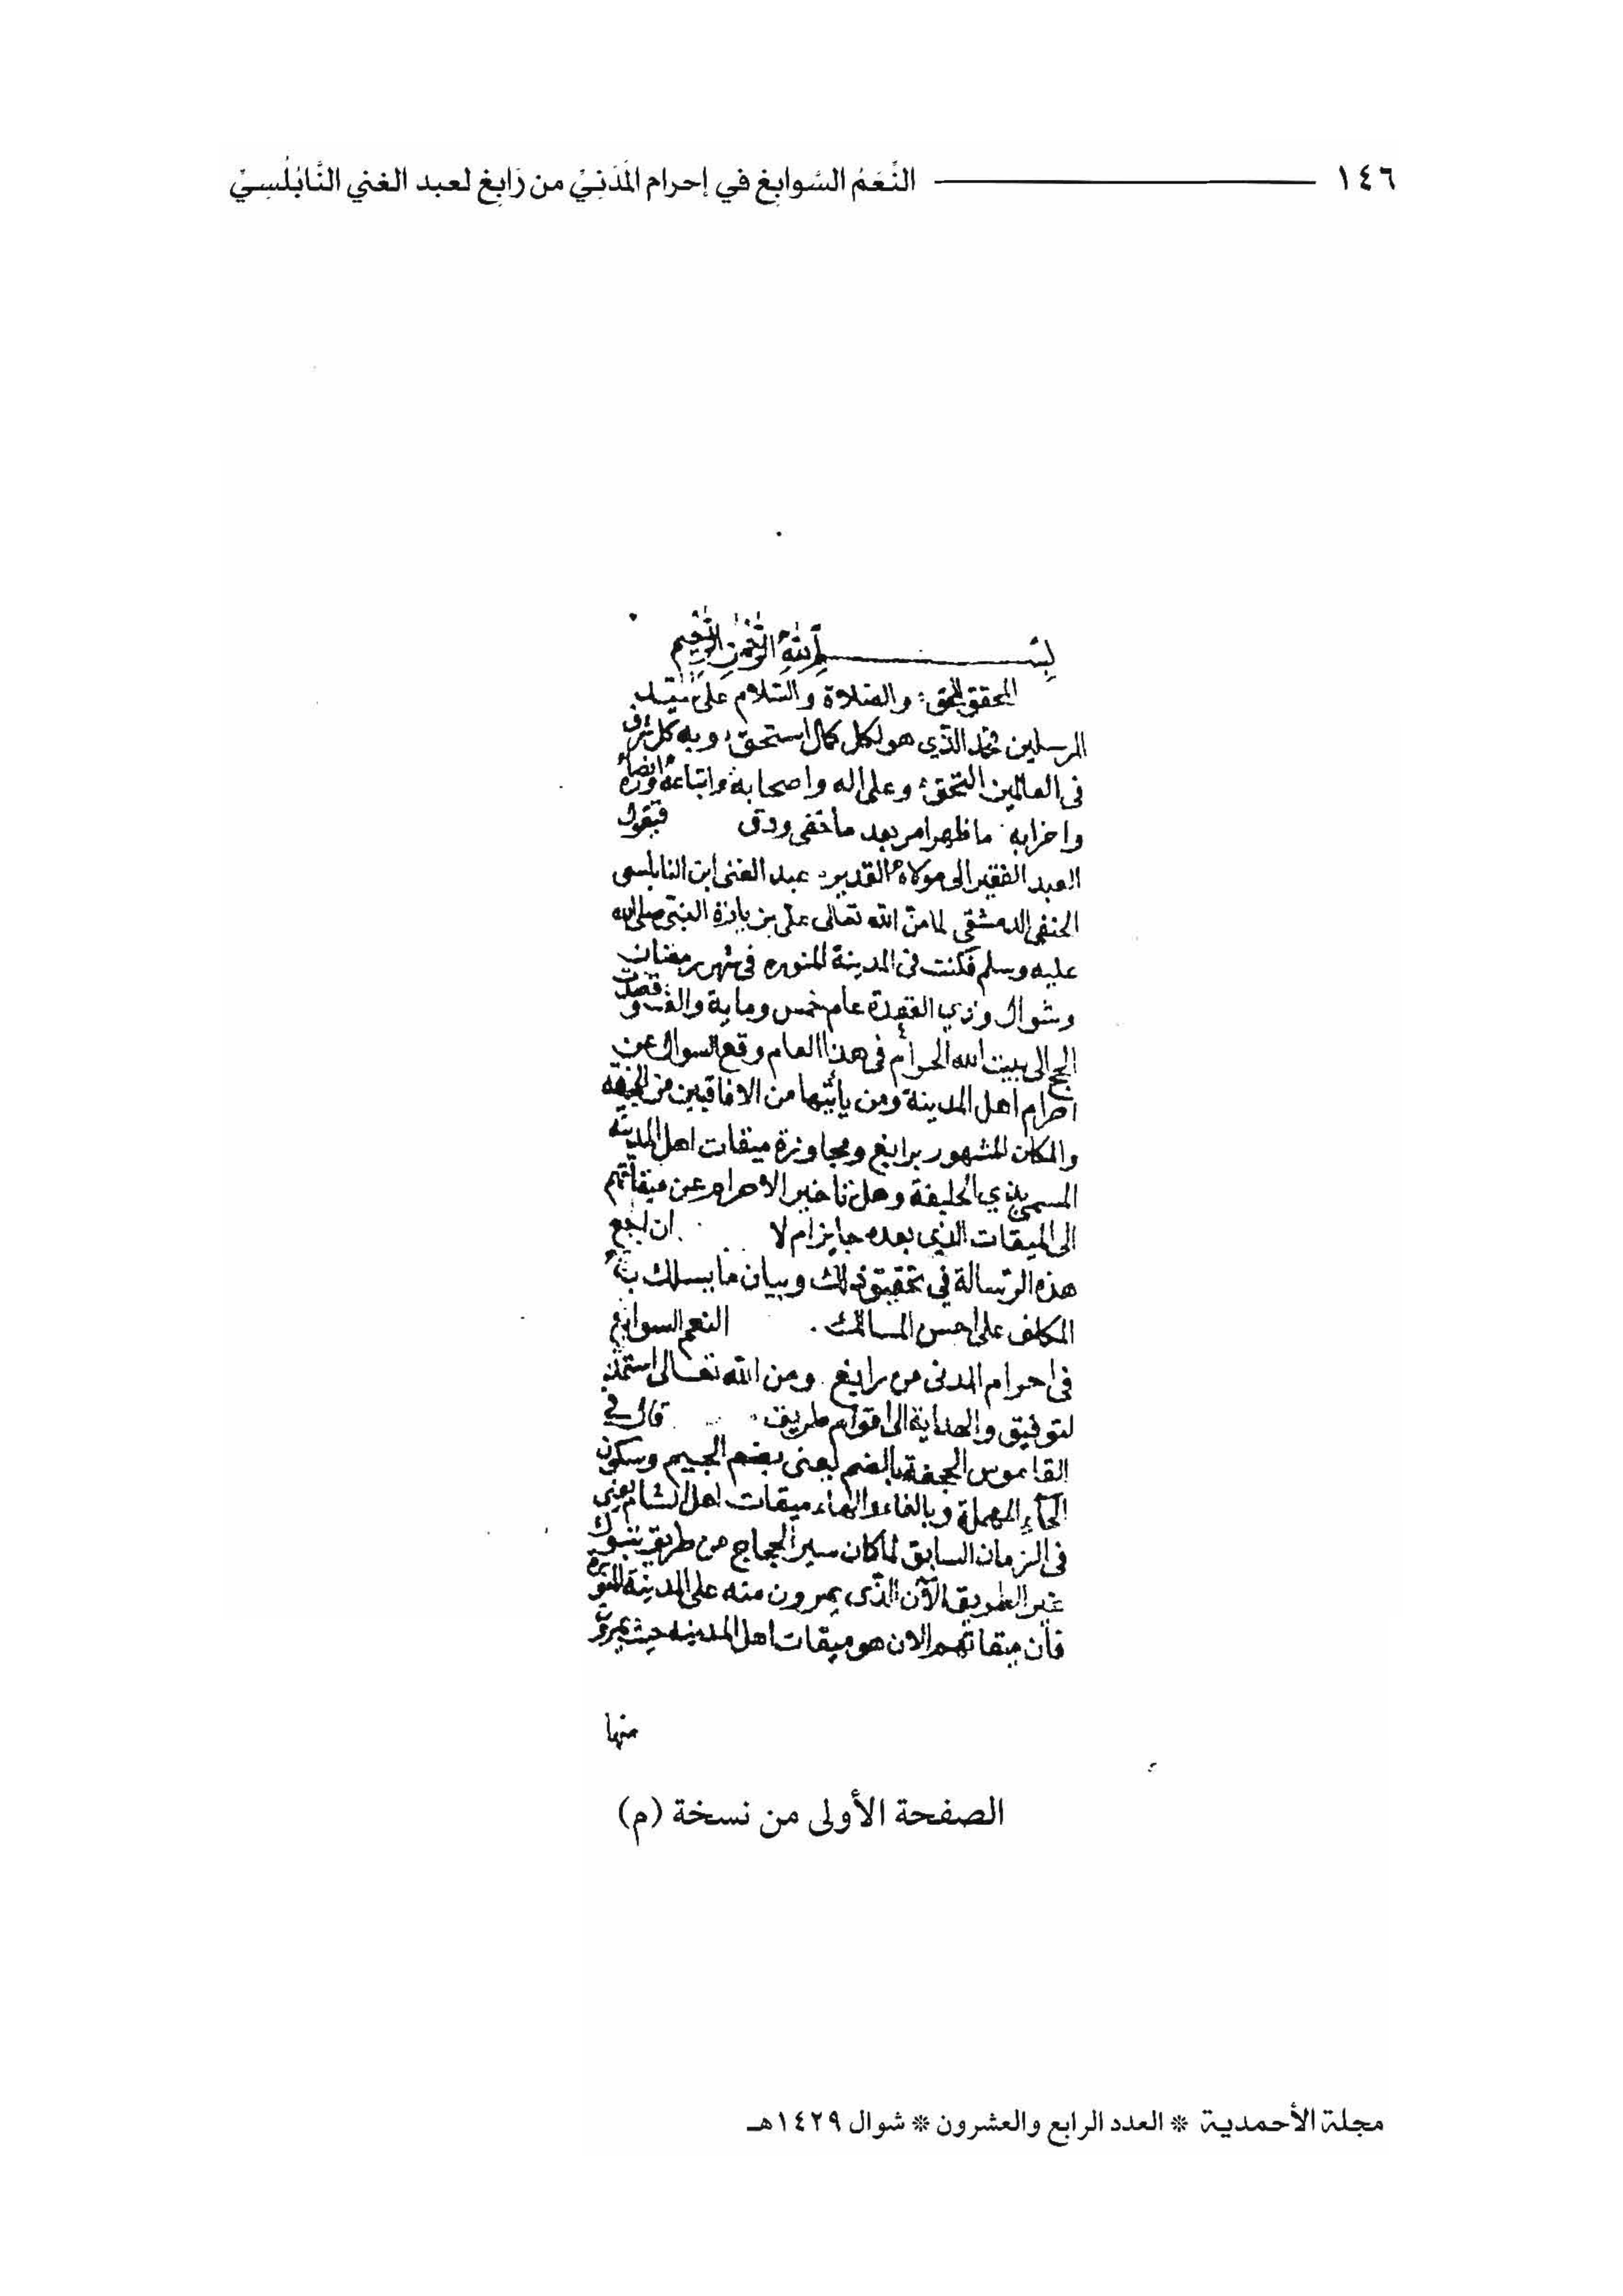 ١٤٦ النَّعَمُ السَّوابِغ في إحرام المَدَنِيّ من رَابِغ لعبد الغني النَّابُلُسِيّ
بسم الله الرحمن الرحيم
المحقق للحق والصلاة والسلام على سيد
المرسلين محمد الذي هو لكل كمال استحق وبه كل شرف
في العالمين التحق وعلى اله واصحابه واتباعه
واحزابه ما ظهر امر بعد ما خفى ودق فيقول
العبد الفقير الى مولاه القدير عبد الغنى ابن النابلسى
الحنفى الدمشقى لما من الله تعالى على بزيارة النبى صلى الله
عليه وسلم فكنت فى المدينة المنوره فى شهر رمضان
وشوال وذي القعدة عام خمس وماية والف وقصدت
الحج الى بيت الله الحرام فى هذا العام وقع السوال عن
احرام اهل المدينة ومن ياتيها من الافاقيين من الجحفة
والمكان المشهور برابغ ومجاوزة ميقات اهل المدينة
المسمى بذي الحليفة وهل تاخير الاحرام عن ميقاتهم
الى الميقات الذى بعده جايز ام لا ان اجمع
هذه الرسالة في تحقيق ذلك وبيان ما يسلك به
المكلف على احسن المسالك . النعم السوابغ
فى احرام المدنى من رابغ ومن الله تعالى استمد
لتوفيق والهداية الى اقوام طريق قال في
القاموس الجحفة بالضم يعنى بضم الجيم وسكون
الحآء المهملة وبالفاء والهاء ميقات اهل الشام يعنى
فى الزمان السابق لما كان سير الحجاج من طريق تبوك
غير الطريق الآن الذى يمرون منه على المدينة المنورة
فان ميقاتهم الان هو ميقات اهل المدينه حيث يمرون
منها
الصفحة الأولى من نسخة (م)
مجلة الأحمدية * العدد الرابع والعشرون * شوال ١٤٢٩هـ